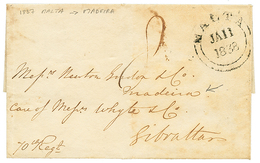 1838 MALTA → MADEIRA
MALTA
JA 11
1838
2
Messrs Newton Gordon & Co.
Madeira
Care of Messrs Whyte & Co
Gibraltar
70th Regt